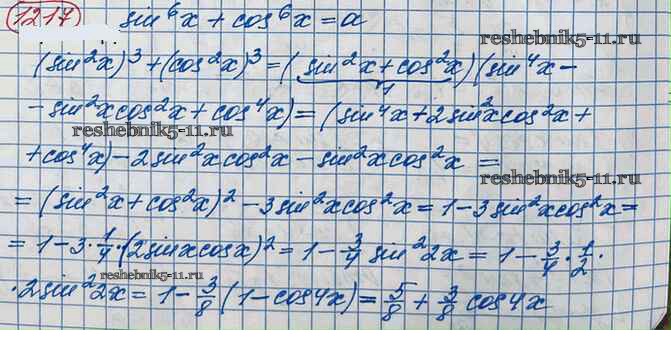 1217 sin⁶x + cos⁶x = a
(sin²x)³ + (cos²x)³ = (sin²x + cos²x)(sin⁴x −
1
− sin²x cos²x + cos⁴x) = (sin⁴x + 2sin²x cos²x +
reshebnik5-11.ru
reshebnik5-11.ru
+ cos⁴x) − 2sin²x cos²x − sin²x cos²x =
reshebnik5-11.ru
= (sin²x + cos²x)² − 3sin²x cos²x = 1 − 3sin²x cos²x =
= 1 − 3 · 1/4 · (2sinx cosx)² = 1 − 3/4 sin²2x = 1 − 3/4 · 1/2 ·
reshebnik5-11.ru
· 2sin²2x = 1 − 3/8 (1 − cos4x) = 5/8 + 3/8 cos4x
reshebnik5-11.ru